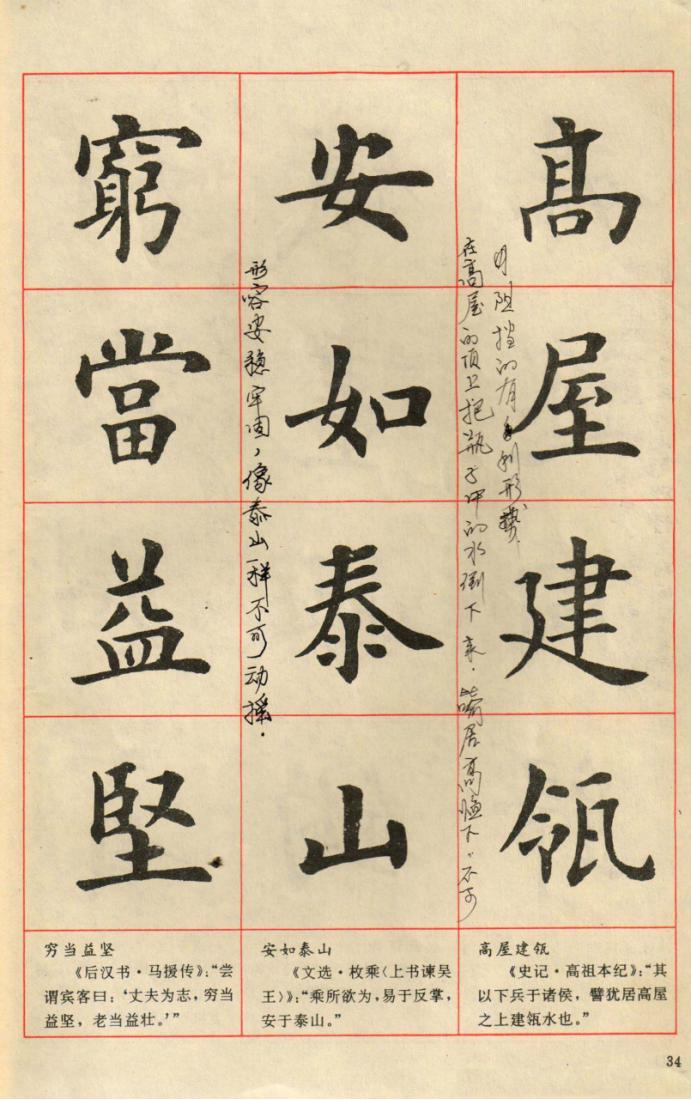 高屋建瓴
安如泰山
窮當益堅
在高屋的顶上把瓶子中的水倒下来.喻居高临下,不可
阻挡的有利形势.
形容安稳牢固,像泰山一样不可动摇.
高屋建瓴
《史记·高祖本纪》:“其
以下兵于诸侯，譬犹居高屋
之上建瓴水也。”
安如泰山
《文选·枚乘〈上书谏吴
王〉》:“乘所欲为，易于反掌，
安于泰山。”
穷当益坚
《后汉书·马援传》:“尝
谓宾客曰：‘丈夫为志，穷当
益坚，老当益壮。’”
34